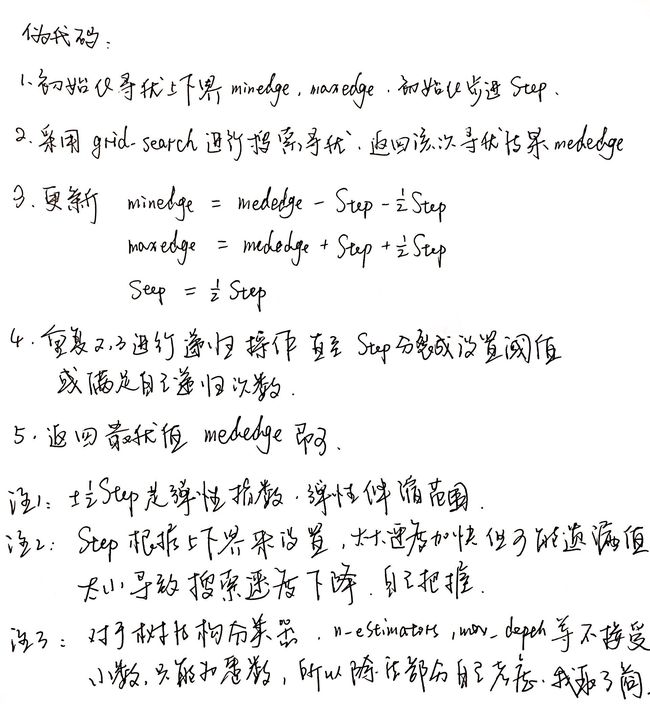 伪代码:
1.初始化寻优上下界 minedge, maxedge. 初始化步进 Step.
2.采用 grid-search 进行搜索寻优. 返回该次寻优结果 mededge
3.更新 minedge = mededge - Step - ½Step
maxedge = mededge + Step + ½Step
Step = ½ Step
4.重复2,3进行递归操作 直至 Step 分裂成设置阈值
或满足自己递归次数.
5.返回最优值 mededge 即可.
注1: ±½Step是弹性指数. 弹性伸缩范围.
注2: Step 根据上下界来设置, 太大速度加快但可能遗漏值
太小导致搜索速度下降. 自己把握.
注3: 对于树结构分类器. n-estimators, max_depth 等不接受
小数, 只能为整数, 所以除法部分自己考虑. 我取了